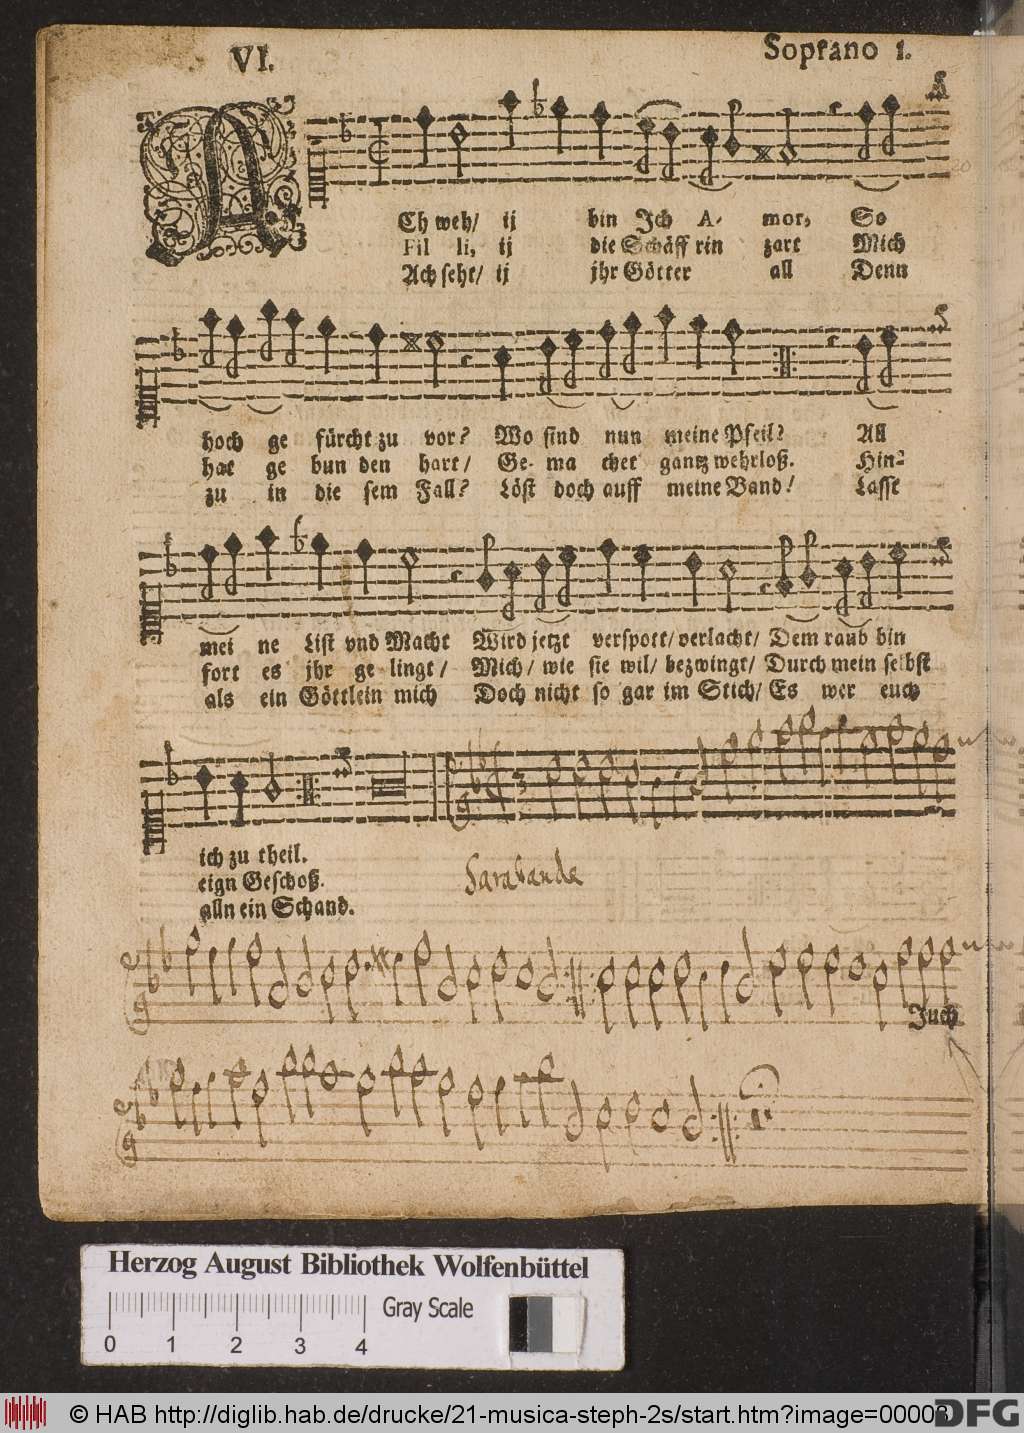 VI.
Soprano 1.
ACh weh/ ij bin Jch A- mor, So
Fil li, ij die Schäff rin zart Mich
Ach seht/ ij jhr Götter all Denn
hoch ge fürcht zu vor? Wo sind nun meine Pfeil? All
hat ge bun den hart/ Ge- ma chet gantz wehrloß. Hin-
zu in die sem Fall? Löst doch auff meine Band! Lasst
mei ne List vnd Macht Wird jetzt verspott/ verlacht/ Dem raub bin
fort es jhr ge lingt/ Mich/ wie sie wil/ bezwingt/ Durch mein selbst
als ein Göttlein mich Doch nicht so gar im Stich/ Es wer euch
ich zu theil.
eign Geschoß.
alln ein Schand.
Sarabanda
Juch
Herzog August Bibliothek Wolfenbüttel
Gray Scale
0 1 2 3 4
© HAB http://diglib.hab.de/drucke/21-musica-steph-2s/start.htm?image=00008
DFG